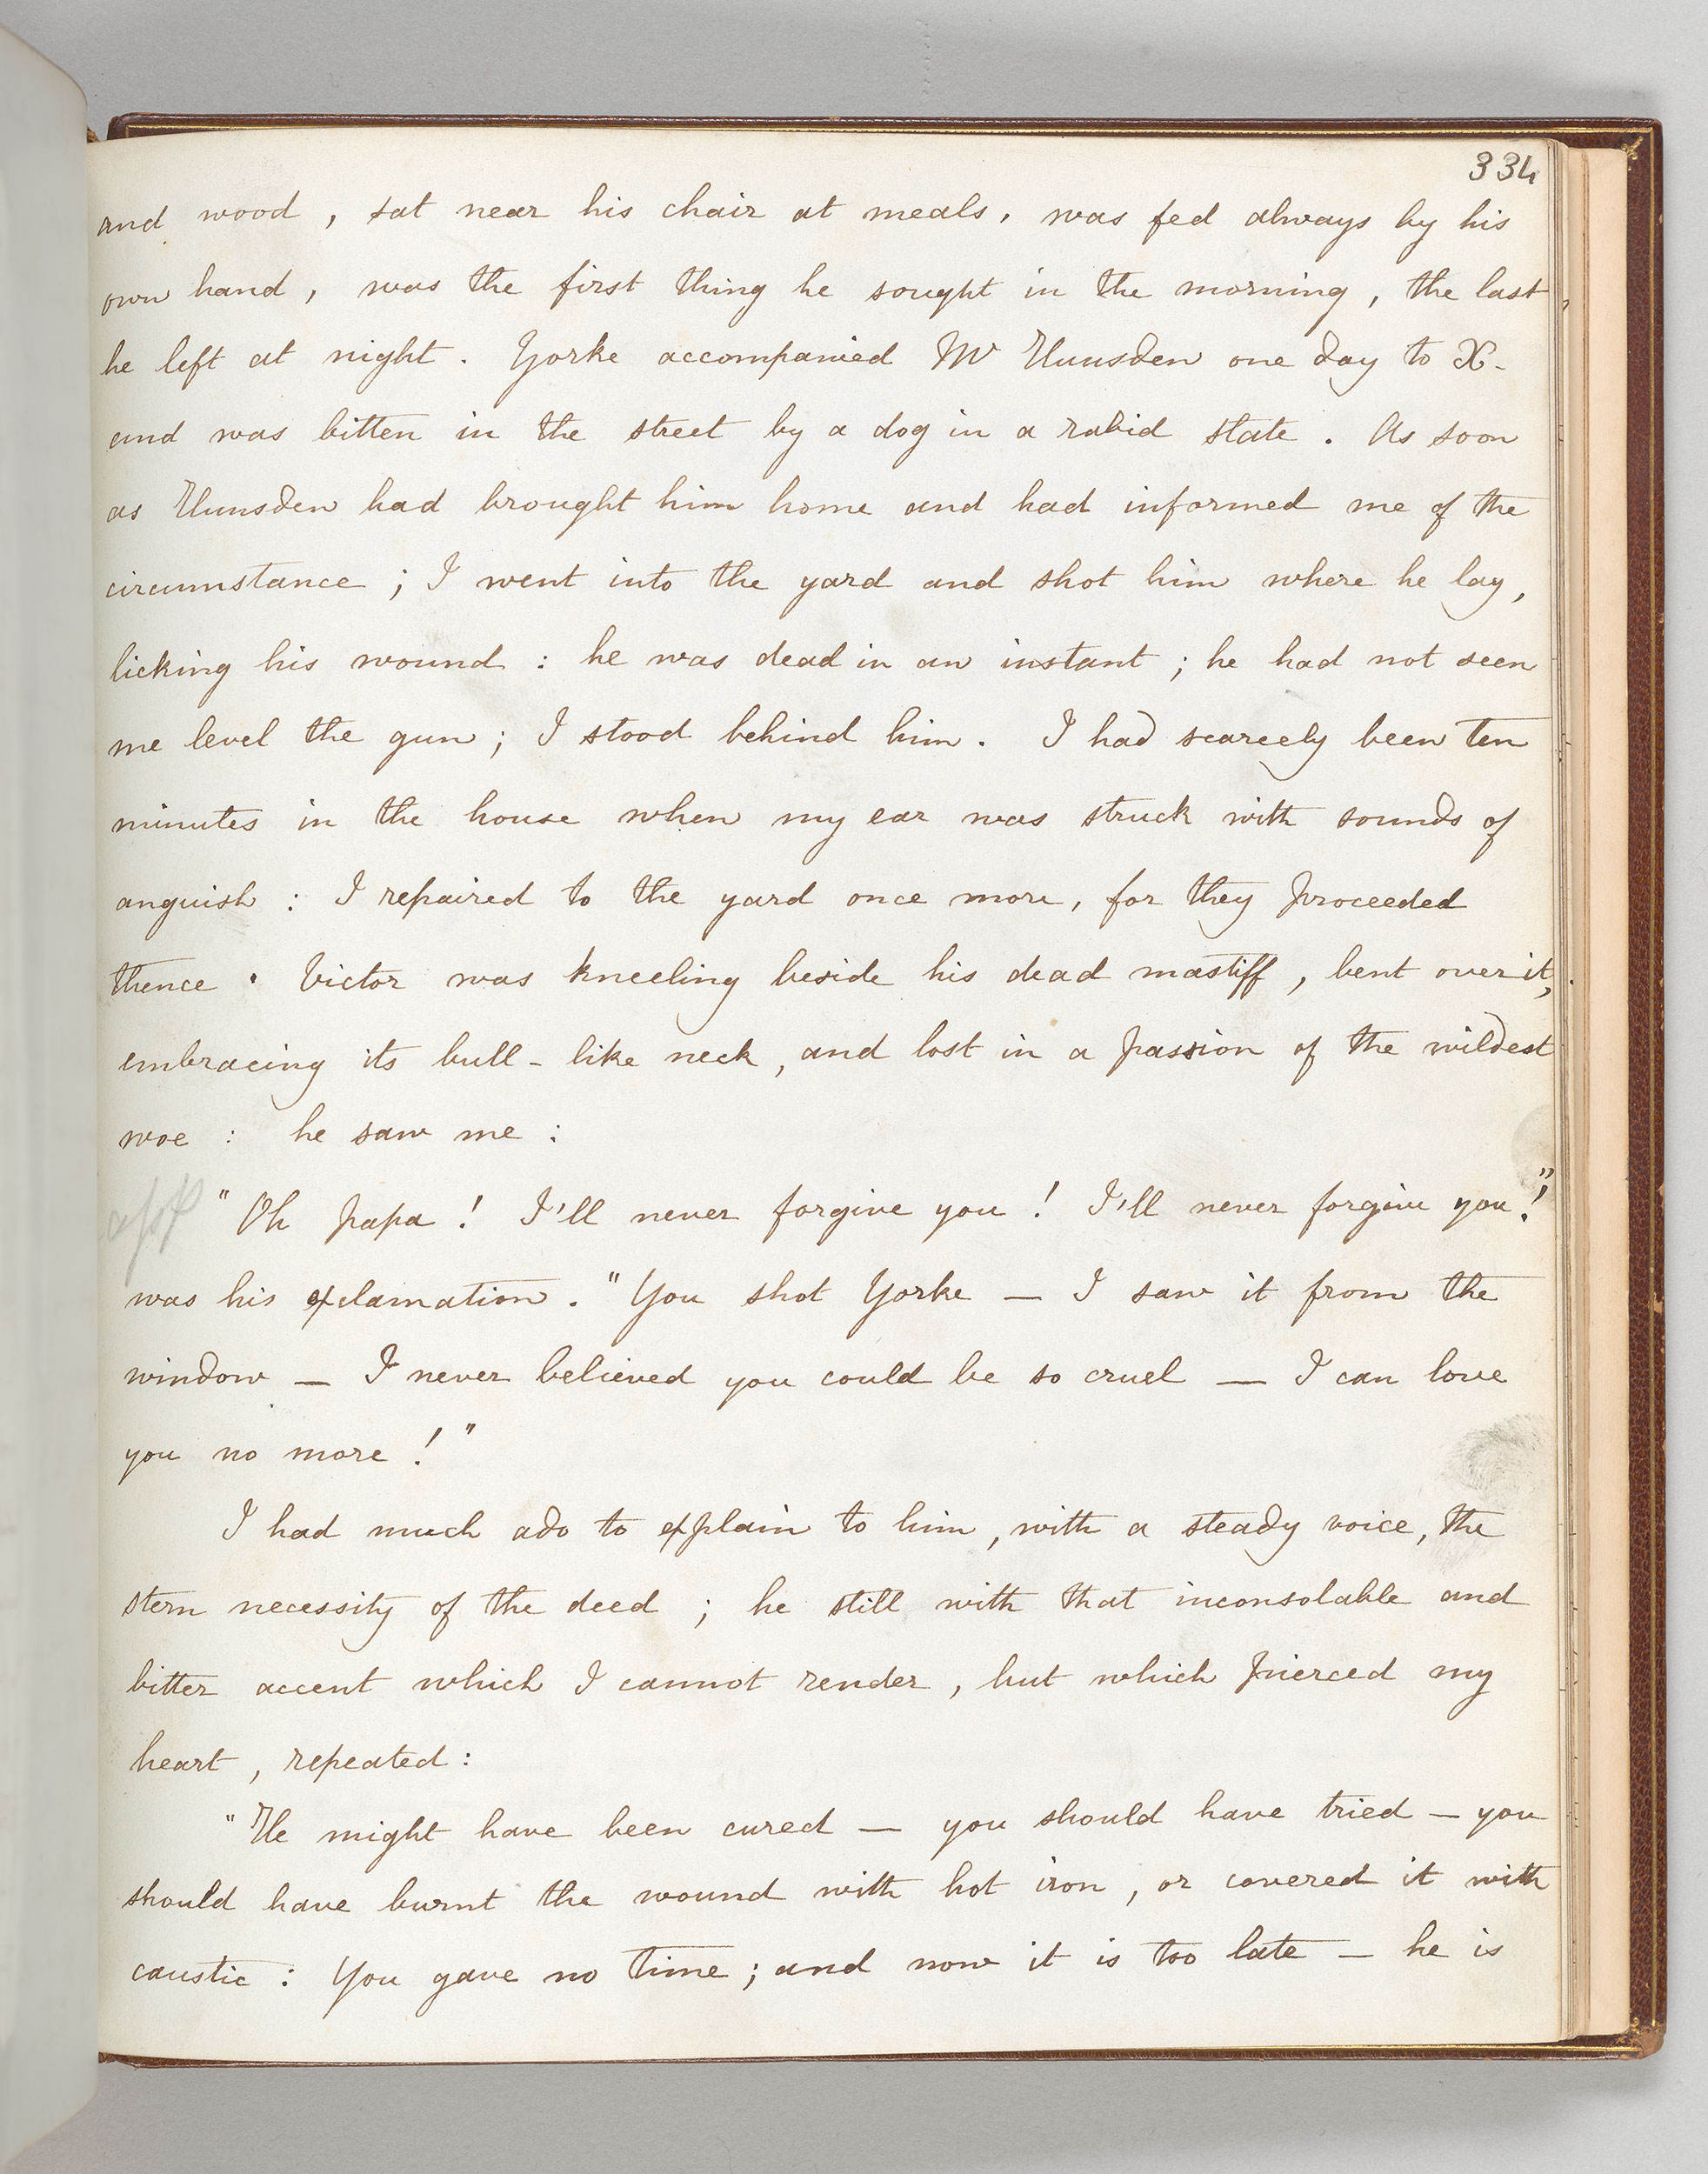 334
and wood, sat near his chair at meals, was fed always by his
own hand, was the first thing he sought in the morning, the last
he left at night. Yorke accompanied Mr Hunsden one day to X-
and was bitten in the street by a dog in a rabid state. As soon
as Hunsden had brought him home and had informed me of the
circumstance; I went into the yard and shot him where he lay,
licking his wound: he was dead in an instant; he had not seen
me level the gun; I stood behind him. I had scarcely been ten
minutes in the house when my ear was struck with sounds of
anguish: I repaired to the yard once more, for they proceeded
thence. Victor was kneeling beside his dead mastiff, bent over it,
embracing its bull-like neck, and lost in a passion of the wildest
woe: he saw me:
"Oh papa! I'll never forgive you! I'll never forgive you!"
was his exclamation. "You shot Yorke — I saw it from the
window — I never believed you could be so cruel — I can love
you no more!"
I had much ado to explain to him, with a steady voice, the
stern necessity of the deed; he still with that inconsolable and
bitter accent which I cannot render, but which pierced my
heart, repeated:
"He might have been cured — you should have tried — you
should have burnt the wound with hot iron, or covered it with
caustic: You gave no time; and now it is too late — he is